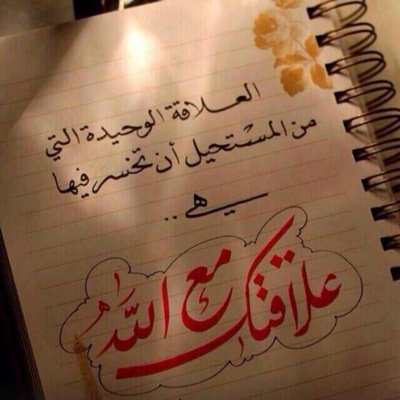 العلاقة الوحيدة التي
من المستحيل أن تخسر فيها
هي..
علاقتك مع الله